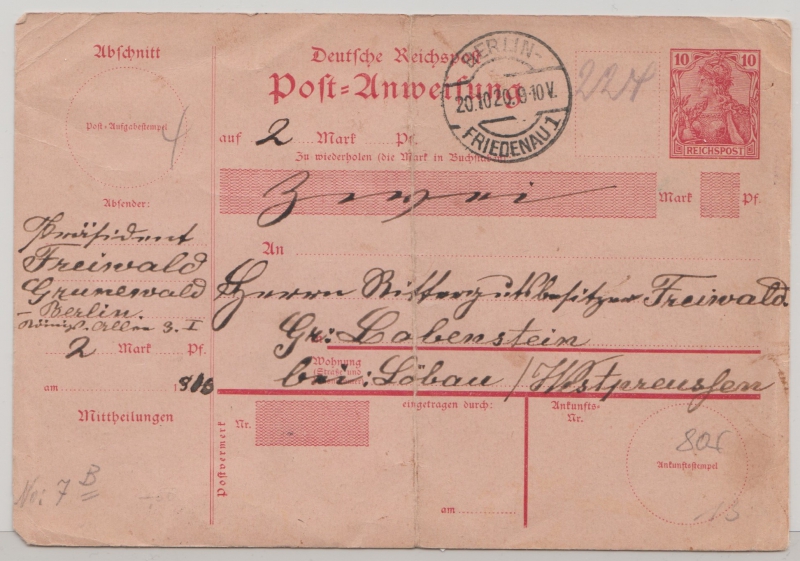 Abschnitt
Post-Aufgabestempel
4
Absender:
Präsident
Freiwald
Grunewald
-Berlin.
Königs. Allee 3. I
2 Mark Pf.
am 1
Mittheilungen
No: 7 B
Deutsche Reichspost
Post-Anweisung
auf 2 Mark Pf.
Zu wiederholen (die Mark in Buchstaben)
Zwei Mark Pf.
An
Herrn Rittergutsbesitzer Freiwald
Gr: Lobenstein
Wohnung
(Straße und
bei: Löbau / Westpreussen
BERLIN-
20.10 20. 9-10 V.
FRIEDENAU 1
224
10 10
REICHSPOST
Postvermerk
Nr.
eingetragen durch:
am
Ankunfts-
Nr.
Ankunftsstempel